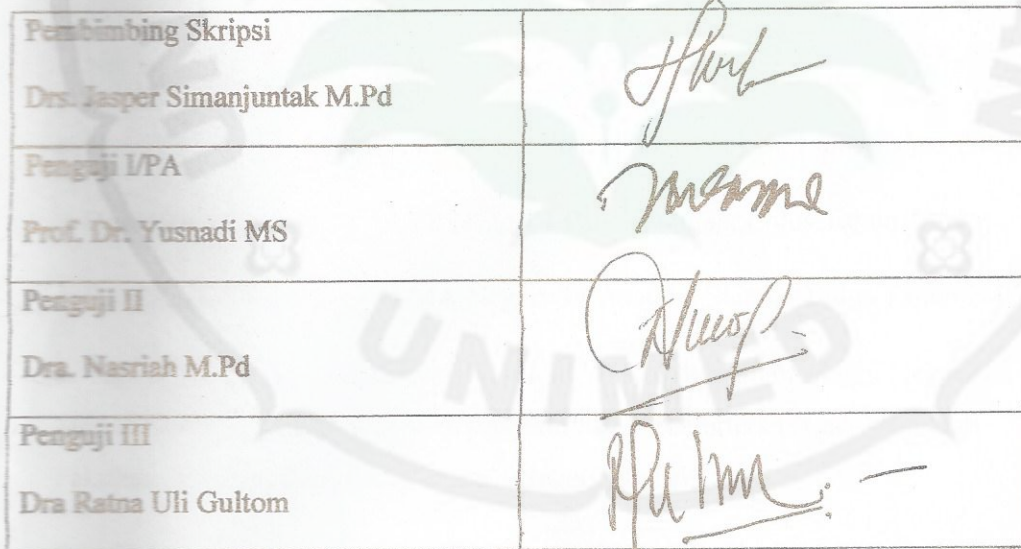 Pembimbing Skripsi
Drs. Jasper Simanjuntak M.Pd
Penguji I/PA
Prof. Dr. Yusnadi MS
Penguji II
Dra. Nasriah M.Pd
Penguji III
Dra Ratna Uli Gultom
UNIMED